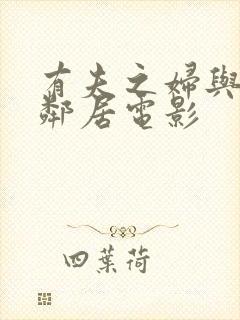 有夫之婦與
鄰居電影
四葉荷